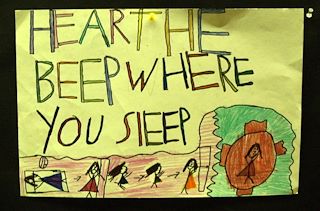 HEAR THE
BEEP WHERE
YOU SlEEP